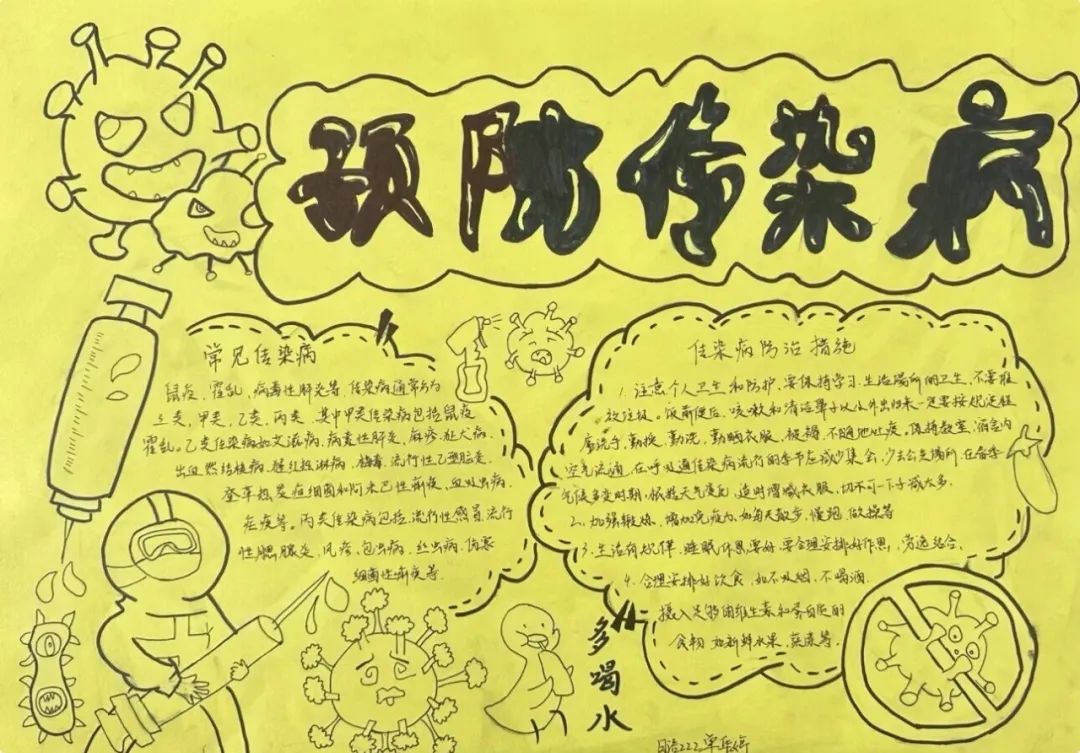 预防传染病
常见传染病
鼠疫、霍乱、病毒性肝炎等、传染病通常分为
三类,甲类,乙类,丙类。其中甲类传染病包括鼠疫
霍乱。乙类传染病如艾滋病,病毒性肝炎,麻疹、狂犬病,
出血热结核病,猩红热淋病,梅毒,流行性乙型脑炎,
登革热炭疽细菌和阿米巴性痢疾,血吸虫病,
症疾等。丙类传染病包括,流行性感冒,流行
性腮腺炎,风疹,包虫病,丝虫病,伤寒
细菌性痢疾等
传染病防治措施
1、注意个人卫生和防护,要保持学习,生活场所的卫生,不要堆
放垃圾。饭前便后、咳嗽和清洁鼻子以及外出归来一定要按规定程
序洗手,勤换,勤洗,勤晒衣服,被褥,不随地吐痰。保持教室,宿舍内
空气流通,在呼吸道传染病流行的季节应减少集会,少去公共场所,在春季
气候多变时期,依据天气变化,适时增减衣服,切不可一下子减太多.
2、加强锻炼,增加免疫力,如每天散步,慢跑,做操等
3、生活有规律,睡眠休息要好,要合理安排好作息,劳逸结合,
4、合理安排好饮食,如不吸烟,不喝酒.
摄入足够的维生素和蛋白质的
食物 如新鲜水果,蔬菜等.
多喝水